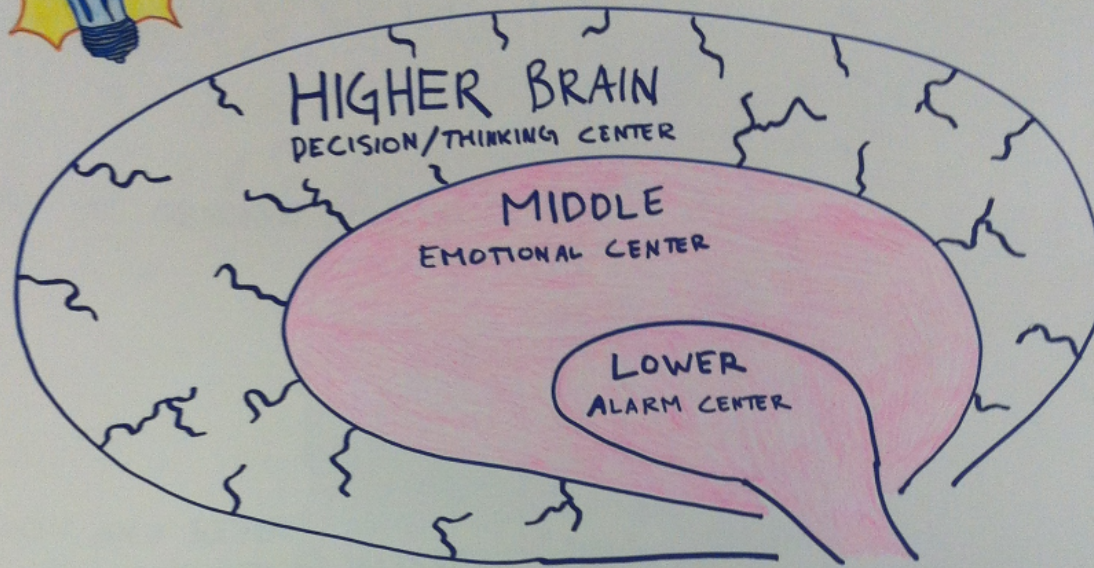 HIGHER BRAIN
DECISION/THINKING CENTER
MIDDLE
EMOTIONAL CENTER
LOWER
ALARM CENTER